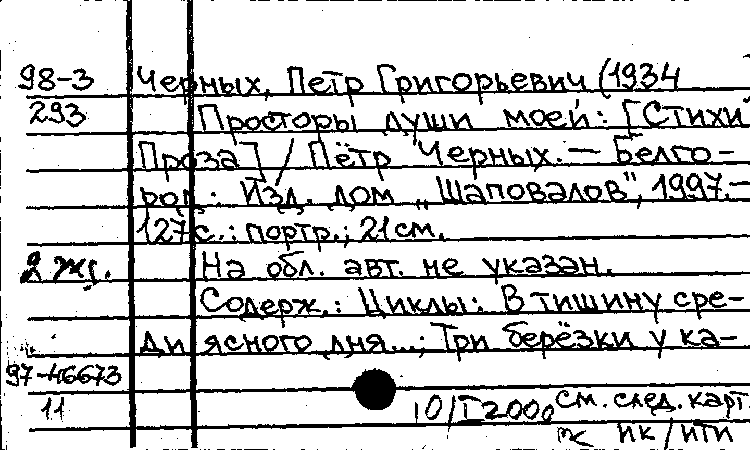 98-3 Черных, Петр Григорьевич (1934
293 Просторы души моей: [Стихи
Проза] / Пётр Черных. — Белго-
род: Изд. дом „Шаповалов", 1997.—
127с.: портр.; 21см.
2 На обл. авт. не указан.
Содерж.: Циклы: В тишину сре-
ди ясного дня...; Три берёзки у ка-
97-46673
11 10/I 2000 см. след. карт.
ИК/ИТИ